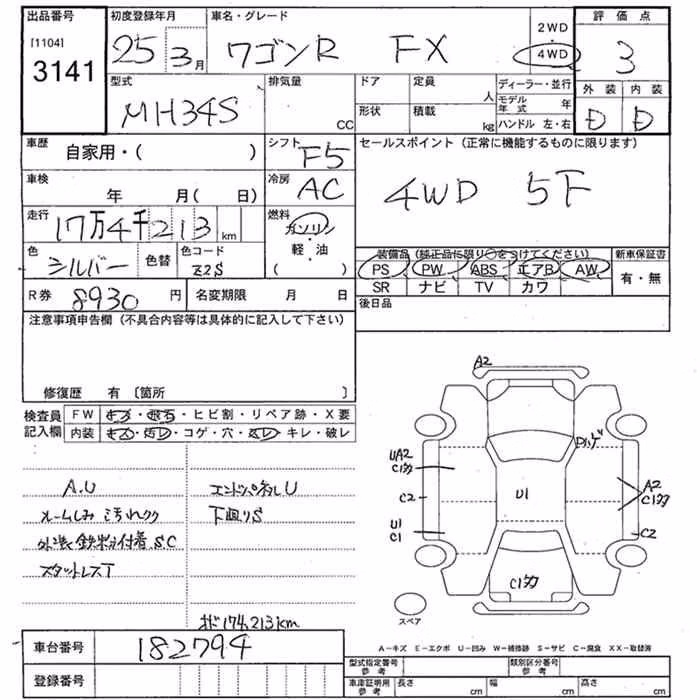 出品番号 初度登録年月 車名・グレード 2WD 評価点
[1104] 3141 25年3月 ワゴンR FX 4WD 3
型式 排気量 ドア 定員 人 ディーラー・並行 外装 内装
MH34S CC 形状 積載 kg モデル年式 年 D D
ハンドル 左・右
車歴 自家用・( ) シフト F5 セールスポイント (正常に機能するものに限ります)
車検 年 月( 日) 冷房 AC 4WD 5F
走行 17万4千213km 燃料 ガソリン・軽・油 ( )
色 シルバー 色替 色コード Z2S
装備品 (純正品に限り○をつけてください) 新車保証書
PS PW ABS エアB AW 有・無
SR ナビ TV カワ
R券 8930円 名変期限 月 日 後日品
注意事項申告欄 (不具合内容等は具体的に記入して下さい)
修復歴 有 〔箇所 〕
検査員記入欄 FW キズ・飛石・ヒビ割・リペア跡・X要
内装 キズ・汚レ・コゲ・穴・スレ・キレ・破レ
A.U エンドパネルU
ルームしみ 汚れ 下廻りS
外装鉄粉付着 S.C
スタットレスT
174,213km
A2
UA2
C1
C2
U1
C1
U1
Dハゲ
A2
C1
C2
C1
スペア
A－キズ E－エクボ U－凹み W－補修跡 S－サビ C－腐食 XX－取替済
車台番号 182794
登録番号
型式指定番号 参考 類別区分番号 参考
車庫証明用 参考 長さ cm 幅 cm 高さ cm